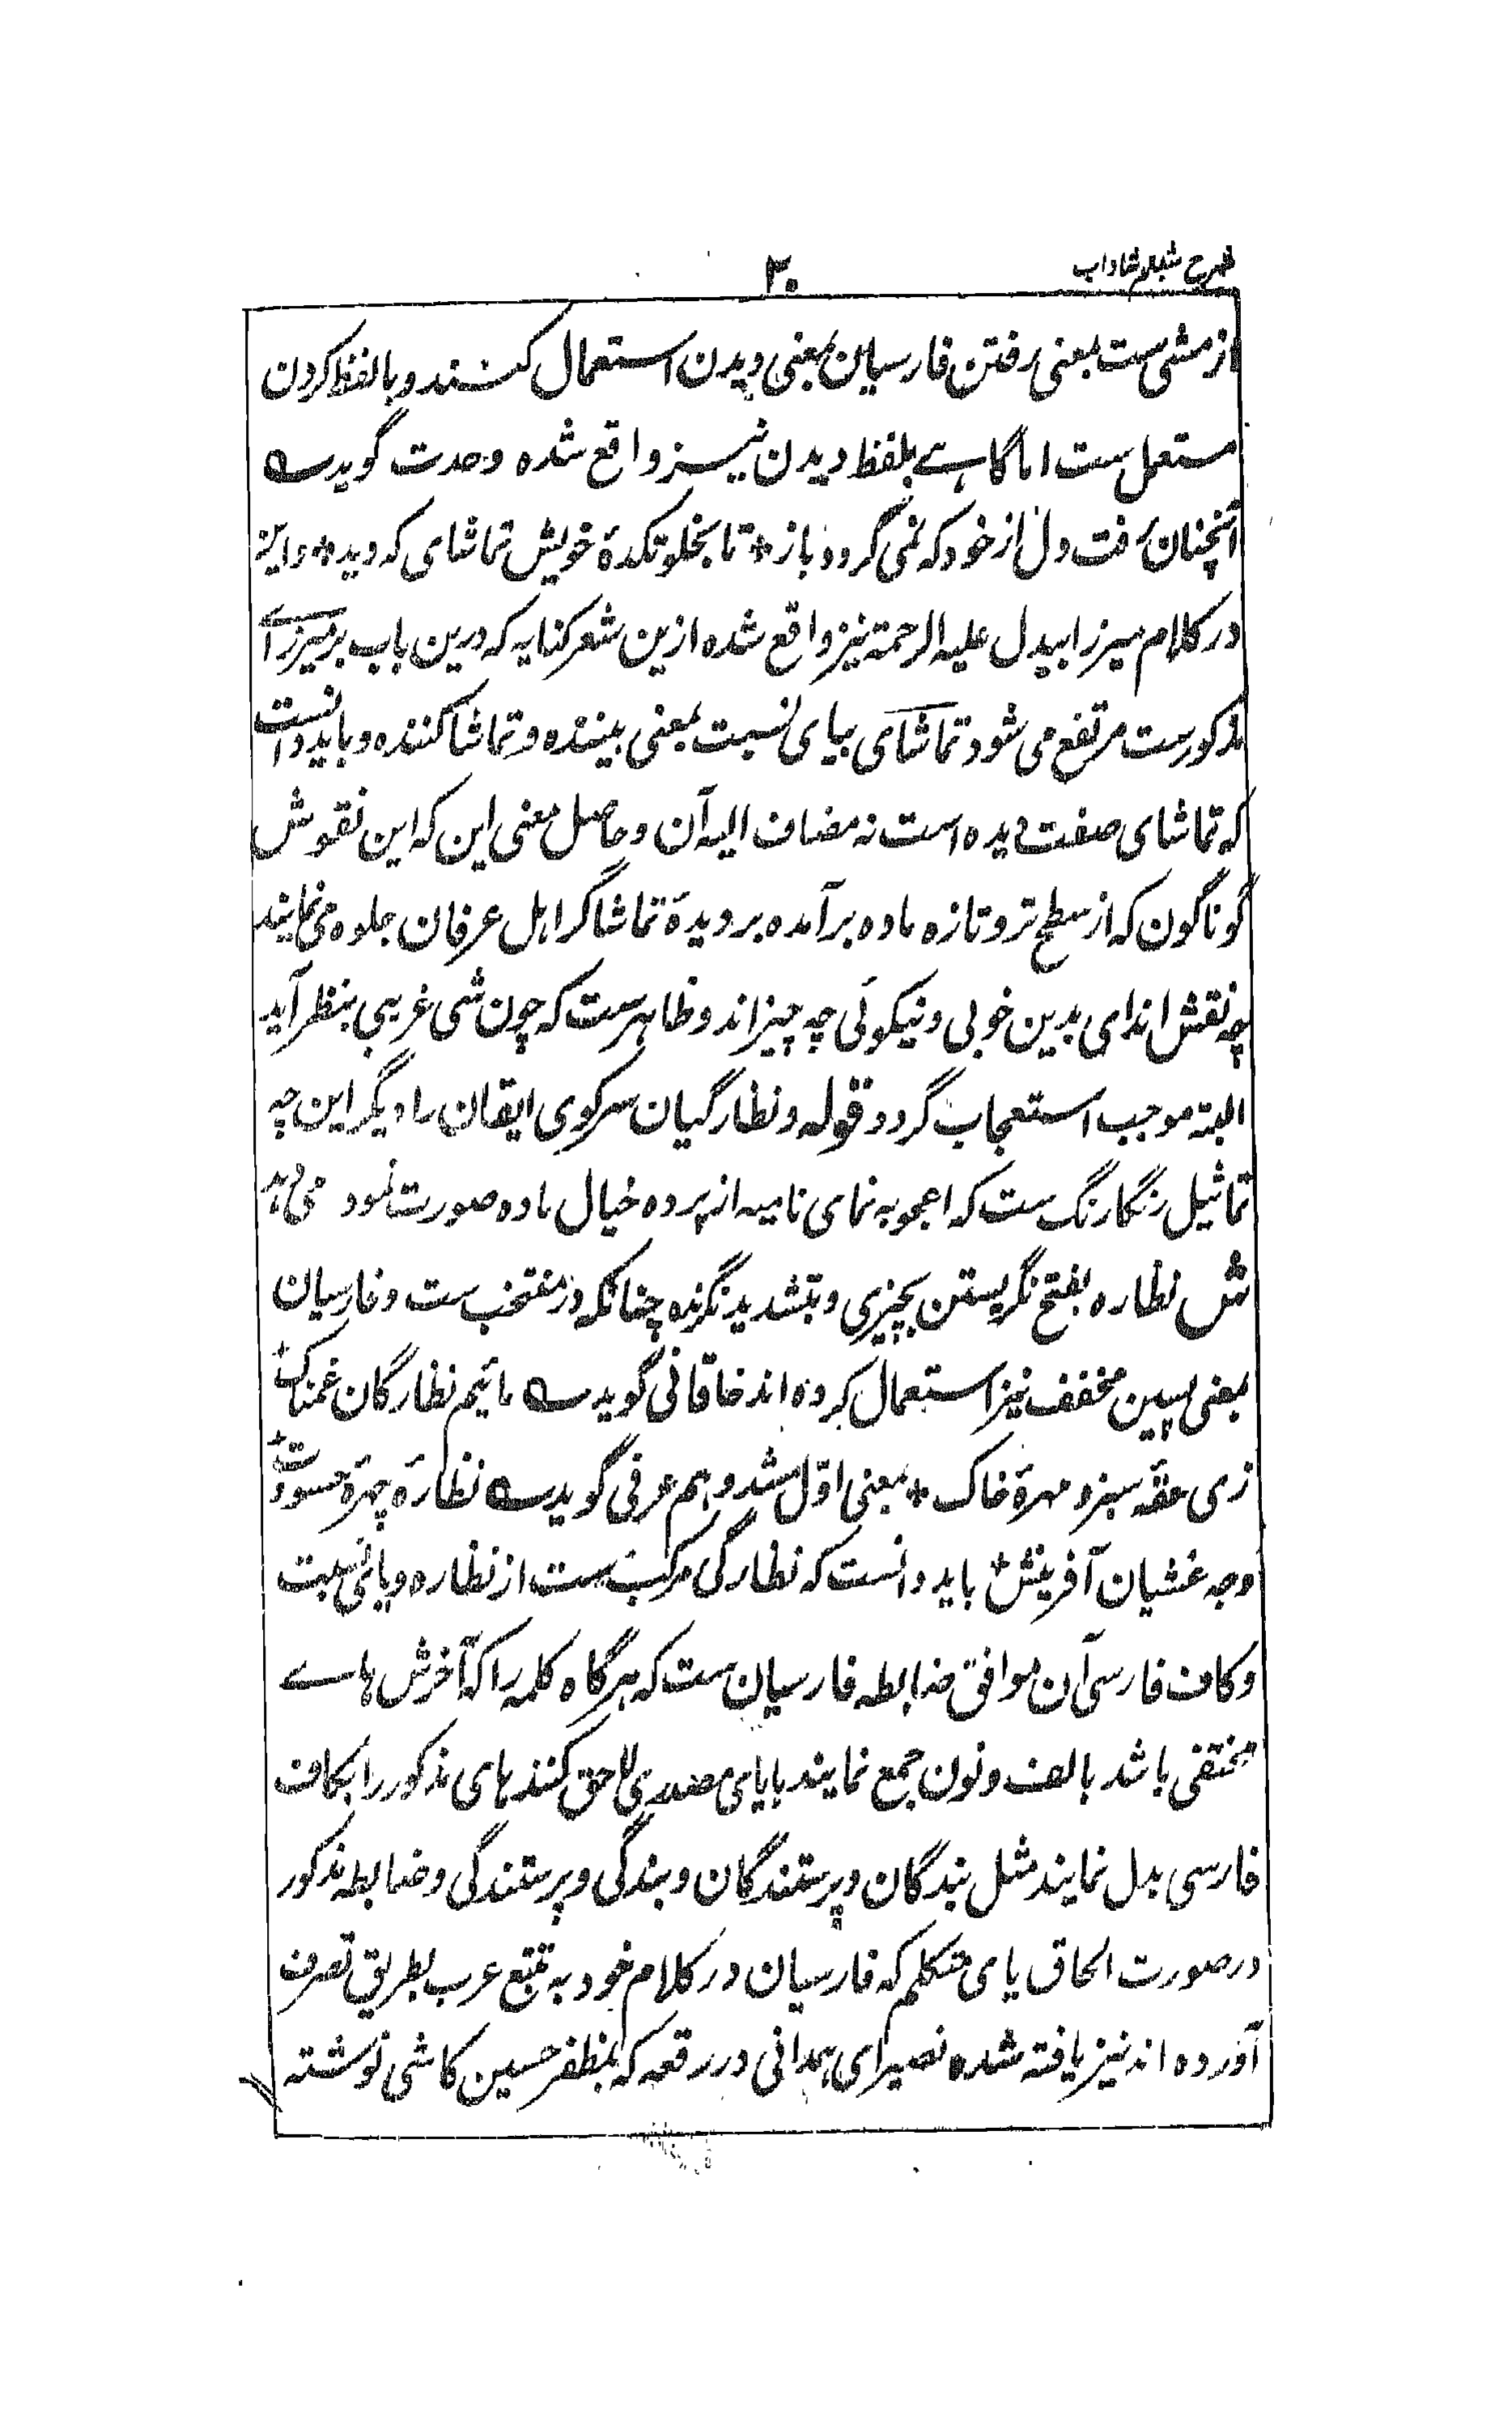 شرح شبنم شاداب
۳۰
از مشی ست بمعنی رفتن فارسیان بمعنی دیدن استعمال کنند و بالفظ کردن
مستعمل ست اما گاہے بلفظ دیدن نیز واقع شدہ وحدت گوید ؎
آنچنان رفت دل از خود کہ نمی گردد باز * تا بخلوتکدۂ خویش تماشای کہ دید *
در کلام میرزا بیدل علیہ الرحمۃ نیز واقع شدہ ازین شعر کنایہ کہ درین باب بر میرزای
مذکورست مرتفع می شود تماشای بیای نسبت بمعنی بینندہ و تماشا کنندہ و باید دانست
کہ تماشای صفت دیدہ است نہ مضاف الیہ آن و حاصل معنی این کہ این نقوش
گوناگون کہ از سطح تر و تازہ مادہ برآمدہ بر دیدۂ تماشاگر اہل عرفان جلوہ می نمایند
چہ نقش اند ای بدین خوبی و نیکوئی چہ چیز اند و ظاہرست کہ چون شی غریبی بنظر آید
البتہ موجب استعجاب گردد قولہ و نظارگیان سرکوی ایقان را دیگر این چہ
تماثیل رنگارنگ ست کہ اعجوبہ نمای نامیہ از پردہ خیال مادہ صورت نمود می دہد
ش نظارہ بفتح نگریستن بچیزی و بتشدید نگرندہ چنانکہ در منتخب ست و فارسیان
بمعنی پسین مخفف نیز استعمال کردہ اند خاقانی گوید ؎ مائیم نظارگان غمناک *
زی حقۂ سبز و مہرۂ خاک * بمعنی اول مشدد ہم عرفی گوید ؎ نظارۂ چہرۂ حسودت *
وجہ غشیان آفرینش * باید دانست کہ نظارگی مرکب ست از نظارہ و یای نسبت
و کاف فارسی آن موافق ضابطہ فارسیان ست کہ ہر گاہ کلمہ را کہ آخرش ہاے
مختفی باشد بالف و نون جمع نمایند یا یای مصدری لاحق کنند ہای مذکور را بکاف
فارسی بدل نمایند مثل بندگان و پرستندگان و بندگی و پرستندگی و ضابطہ مذکور
در صورت الحاق یای متکلم کہ فارسیان در کلام خود بہ تتبع عرب بطریق تصرف
آوردہ اند نیز یافتہ شدہ نصیرای ہمدانی در رقعہ کہ بمظفر حسین کاشی نوشتہ